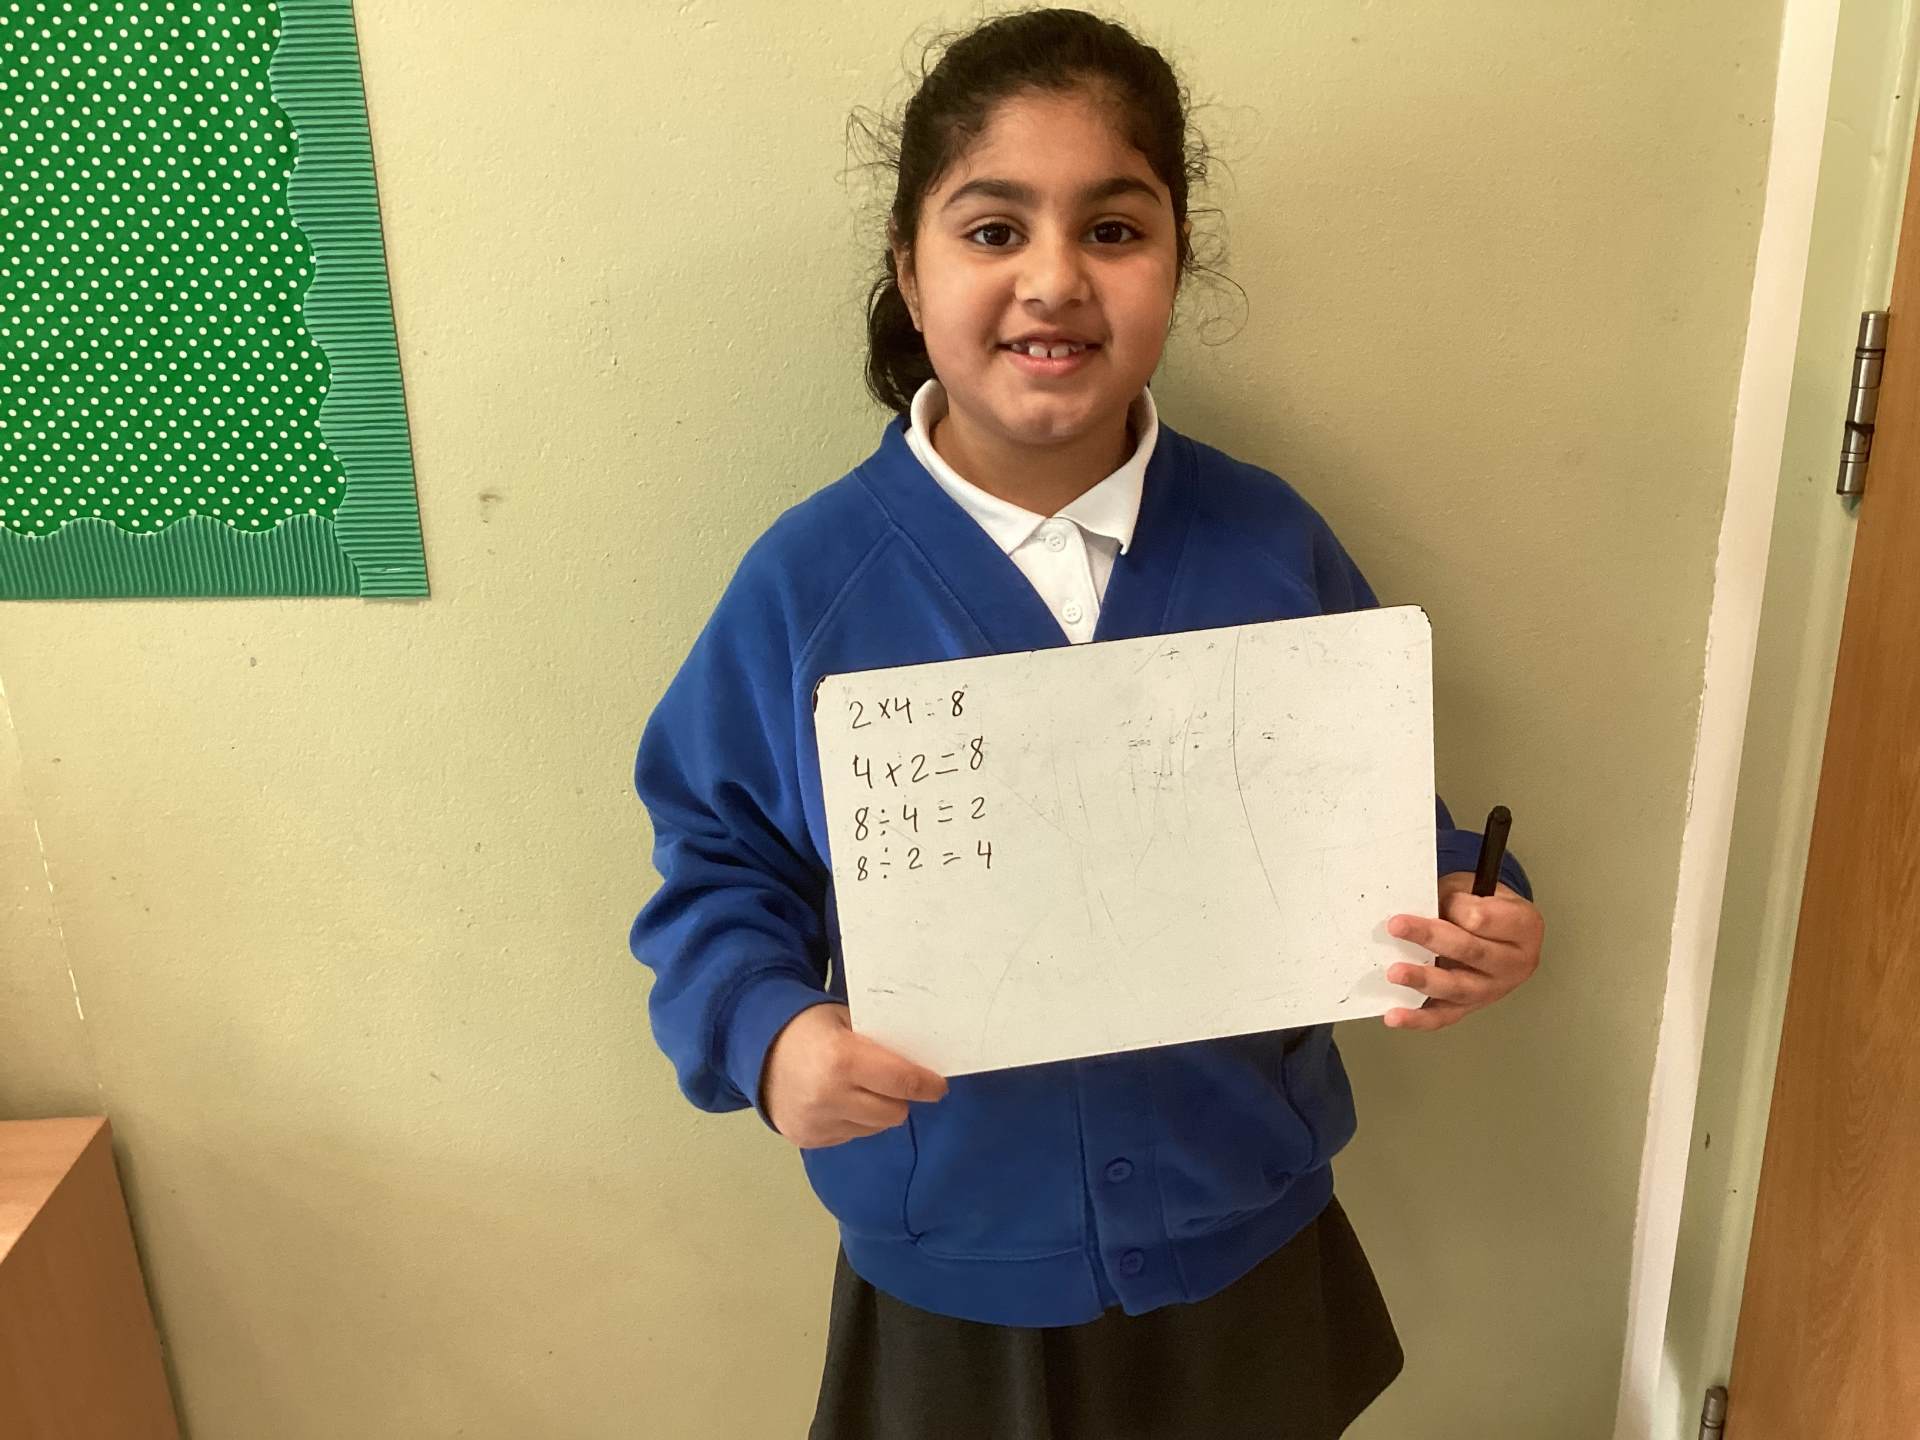 2 × 4 = 8
4 × 2 = 8
8 ÷ 4 = 2
8 ÷ 2 = 4